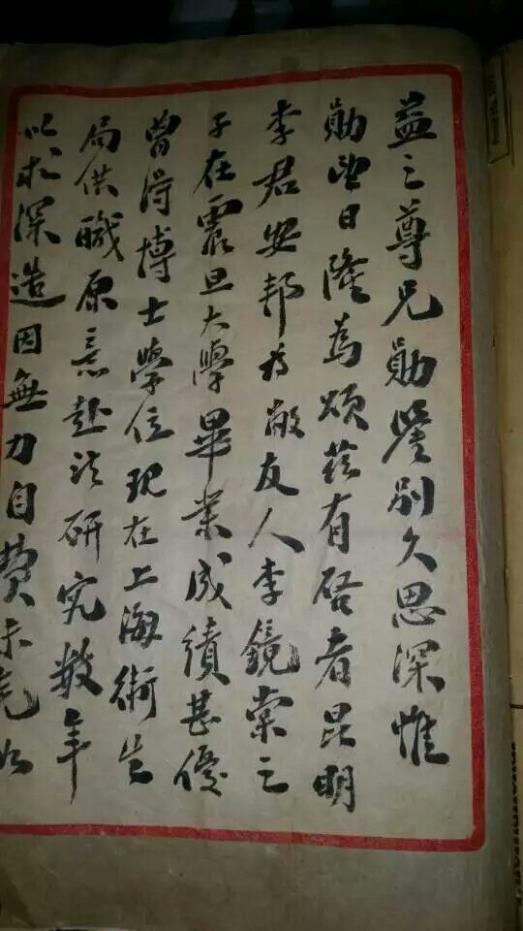 益之尊兄勛鑒別久思深惟
勛望日隆為頌茲有啓者昆明
李君安邦為敝友人李鏡棠之
子在震旦大學畢業成績甚優
曾得博士學位現在上海衛生
局供職原意赴法研究數年
以求深造因無力自費未克如